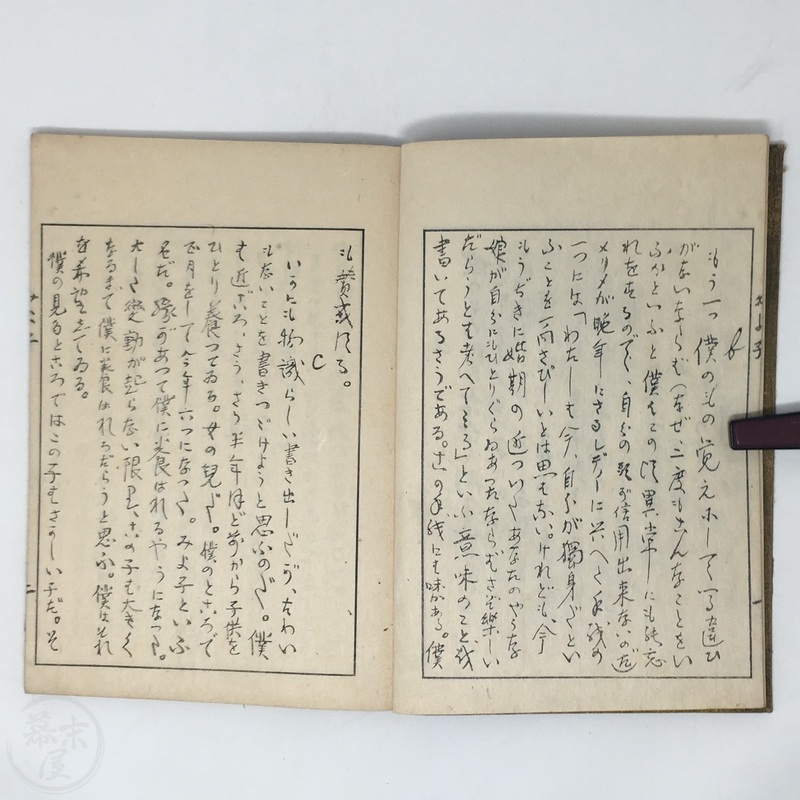 みよ子
一
b
もう一つ 僕のもの覚え 違ひ
がないならば(なぜ、三度もこんなことをい
ふかといふと僕はこの頃異常にも 忘
れをするので、自分の頭が信用出来ないのだ)
メリメが晩年にさるレディーに與へた手紙の
一つには「わたしも今、自分が獨身だとい
ふことを一向さびしいとは思はない。けれども、今
もうぢきに婚期の近づいたあなたのやうな
娘が自分にもひとりぐらゐあつたならばさぞ樂しい
だらうとも考へてみる」といふ意味のことが
書いてあるさうである。この手紙にも味がある。僕
も賛成する。
c
いかにも物識らしい書き出しだが、たわい
もないことを書きつづけようと思ふのだ。僕
も近ごろ、さう、さう半年ほど前から子供を
ひとり養つてゐる。女の兒だ。僕のところで
正月をして今年六つになつた。みよ子といふ
名だ。縁があつて僕に養はれるやうになつた。
大した變動が起らない限り、この子も大きく
なるまで僕に養はれるだらうと思ふ。僕はそれ
を希望してゐる。
僕の見るところではこの子はさびしい子だ。そ
二
幕末屋